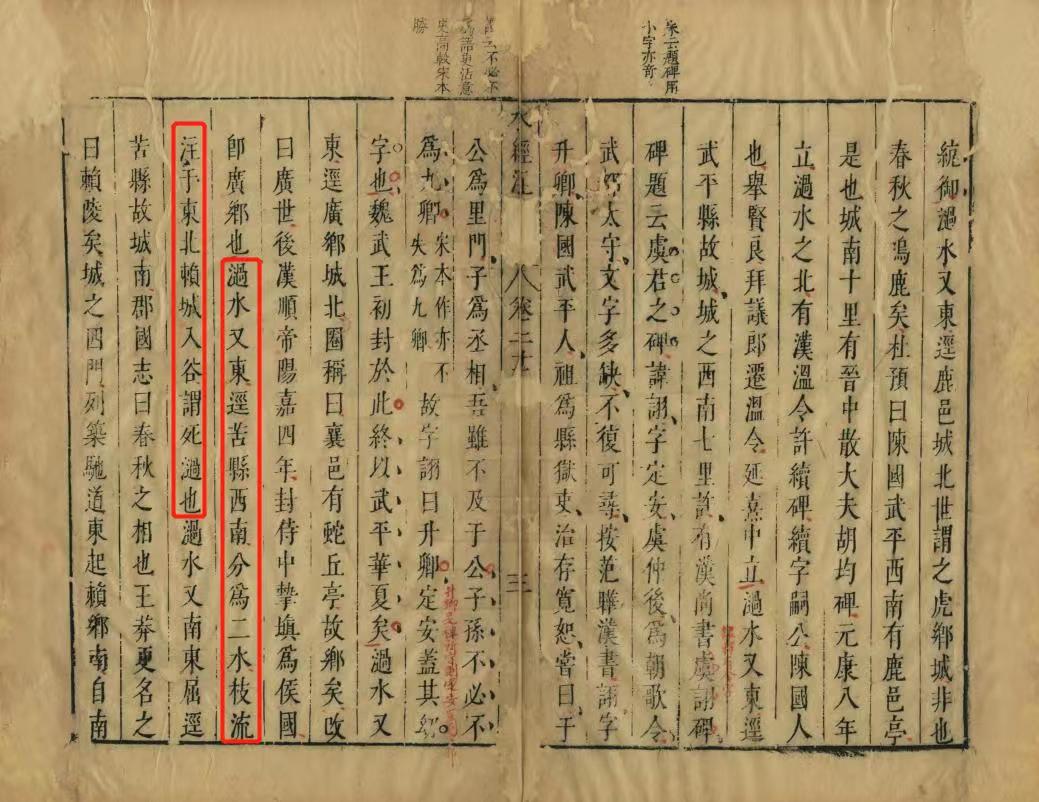 朱云題碑用
小字亦奇
統御濄水又東逕鹿邑城北世謂之虎鄉城非也
春秋之鳴鹿矣杜預曰陳國武平西南有鹿邑亭
是也城南十里有晉中散大夫胡均碑元康八年
立濄水之北有漢溫令許續碑續字嗣公陳國人
也舉賢良拜議郎遷溫令延熹中立濄水又東逕
武平縣故城城之西南七里許有漢尚書虞詡碑
碑題云虞君之碑諱詡字定安虞仲後爲朝歌令
武太守文字多缺不復可尋按范曄漢書詡字
升卿陳國武平人祖爲縣獄吏治存寬恕嘗曰于
水經注
卷二十
三
不必不
語更活意
史高數宋本
勝
公爲里門子爲丞相吾雖不及于公子孫不必不
爲九卿
宋本作亦不
失爲九卿
故字詡曰升卿定安蓋其幼
字也魏武王初封於此終以武平華夏矣濄水又
東逕廣鄉城北圈稱曰襄邑有蛇丘亭故鄉矣改
曰廣世後漢順帝陽嘉四年封侍中摯塡爲侯國
即廣鄉也濄水又東逕苦縣西南分爲二水枝流
注于東北賴城入谷謂死濄也濄水又南東屈逕
苦縣故城南郡國志曰春秋之相也王莽更名之
曰賴陵矣城之四門列築馳道東起賴鄉南自南